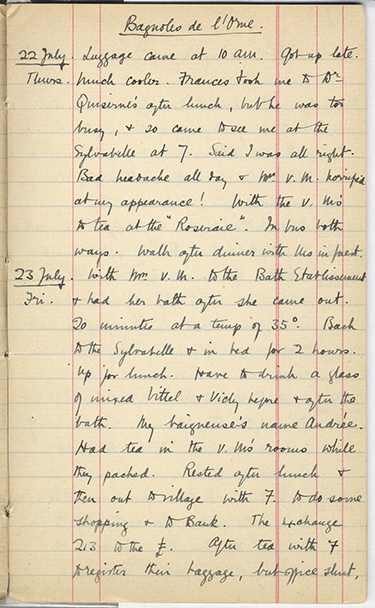 Bagnoles de l'Orne.
22 July. Luggage came at 10 am. Got up late.
Thurs. Much cooler. Frances took me to Dr
Quiserne's after lunch, but he was too
busy, & so came to see me at the
Sylvabelle at 7. Said I was all right.
Bad headache all day & Mrs V.M. horrified
at my appearance! With the V.M's
to tea at the "Roseraie". In bus both
ways. Walk after dinner with Ms in forest.
23 July. With Mrs V.M. to the Bath Etablissement
Fri. & had her bath after she came out.
20 minutes at a temp of 35°. Back
to the Sylvabelle & in bed for 2 hours.
Up for lunch. Have to drink a glass
of mixed Vittel & Vichy before & after the
bath. My baigneuse's name Andrée.
Had tea in the V.M's rooms while
they packed. Rested after lunch &
then out to village with F. to do some
shopping & to Bank. The exchange
213 to the £. After tea with F
to register their baggage, but office shut,